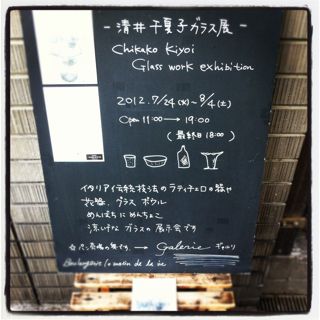 - 清井千夏子ガラス展 -
Chikako Kiyoi
Glass work exhibition
2012. 7/24(火) → 8/4(土)
Open 11:00 → 19:00
(最終日 18:00)
イタリア伝統技法のラティチェロの器や
花器、グラス ボウル
めんばちにめんちょこ
涼しげな ガラスの展示会です
→ Galerie
Boulangerie le matin de la vie